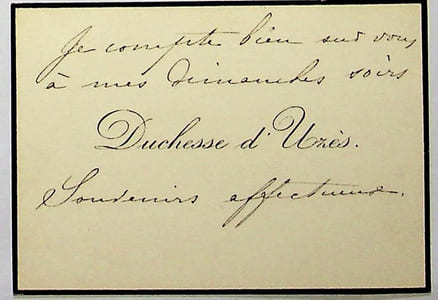 Je compte bien sur vous
à mes dimanches soirs
Duchesse d'Uzès.
Souvenirs affectueux.